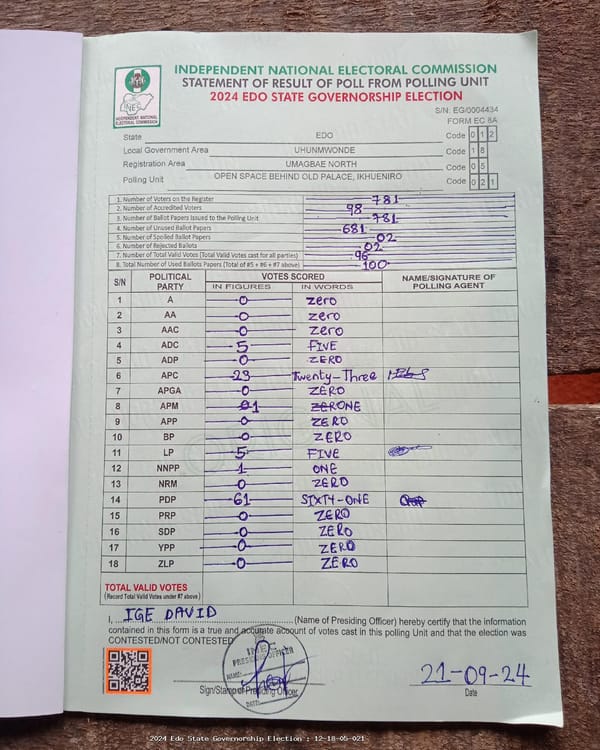 INDEPENDENT NATIONAL ELECTORAL COMMISSION
STATEMENT OF RESULT OF POLL FROM POLLING UNIT
2024 EDO STATE GOVERNORSHIP ELECTION
INEC
INDEPENDENT NATIONAL ELECTORAL COMMISSION
S/N. EG/0004434
FORM EC 8A
State EDO Code 0 1 2
Local Government Area UHUNMWONDE Code 1 8
Registration Area UMAGBAE NORTH Code 0 5
Polling Unit OPEN SPACE BEHIND OLD PALACE, IKHUENIRO Code 0 2 1
1. Number of Voters on the Register 781
2. Number of Accredited Voters 98
3. Number of Ballot Papers Issued to the Polling Unit 781
4. Number of Unused Ballot Papers 681
5. Number of Spoiled Ballot Papers 02
6. Number of Rejected Ballots 02
7. Number of Total Valid Votes (Total Valid Votes cast for all parties) 96
8. Total Number of Used Ballots Papers (Total of #5 + #6 + #7 above) 100
S/N POLITICAL PARTY VOTES SCORED NAME/SIGNATURE OF POLLING AGENT
IN FIGURES IN WORDS
1 A 0 zero
2 AA 0 zero
3 AAC 0 zero
4 ADC 5 FIVE
5 ADP 0 ZERO
6 APC 23 Twenty-Three
7 APGA 0 ZERO
8 APM 01 ONE
9 APP 0 ZERO
10 BP 0 ZERO
11 LP 5 FIVE
12 NNPP 1 ONE
13 NRM 0 ZERO
14 PDP 61 SIXTY-ONE
15 PRP 0 ZERO
16 SDP 0 ZERO
17 YPP 0 ZERO
18 ZLP 0 ZERO
TOTAL VALID VOTES
(Record Total Valid Votes under #7 above)
I, IGE DAVID (Name of Presiding Officer) hereby certify that the information
contained in this form is a true and accurate account of votes cast in this polling Unit and that the election was
CONTESTED/NOT CONTESTED
INEC
PRESIDING OFFICER
NAME:
DATE:
Sign/Stamp of Presiding Officer
21-09-24
Date
2024 Edo State Governorship Election : 12-18-05-021